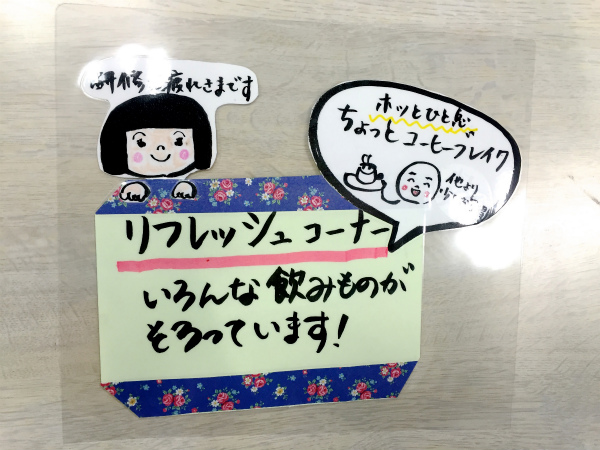 研修お疲れさまです
ホッとひと息
ちょっとコーヒーブレイク
リフレッシュコーナー
いろんな飲みものが
そろっています!